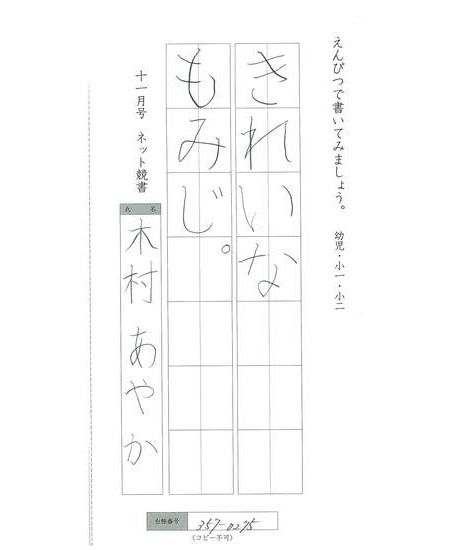 えんぴつで書いてみましょう。 幼児・小一・小二
きれいな
もみじ。
十一月号 ネット競書
氏名
木村 あやか
台帳番号 357-0275
(コピー不可)